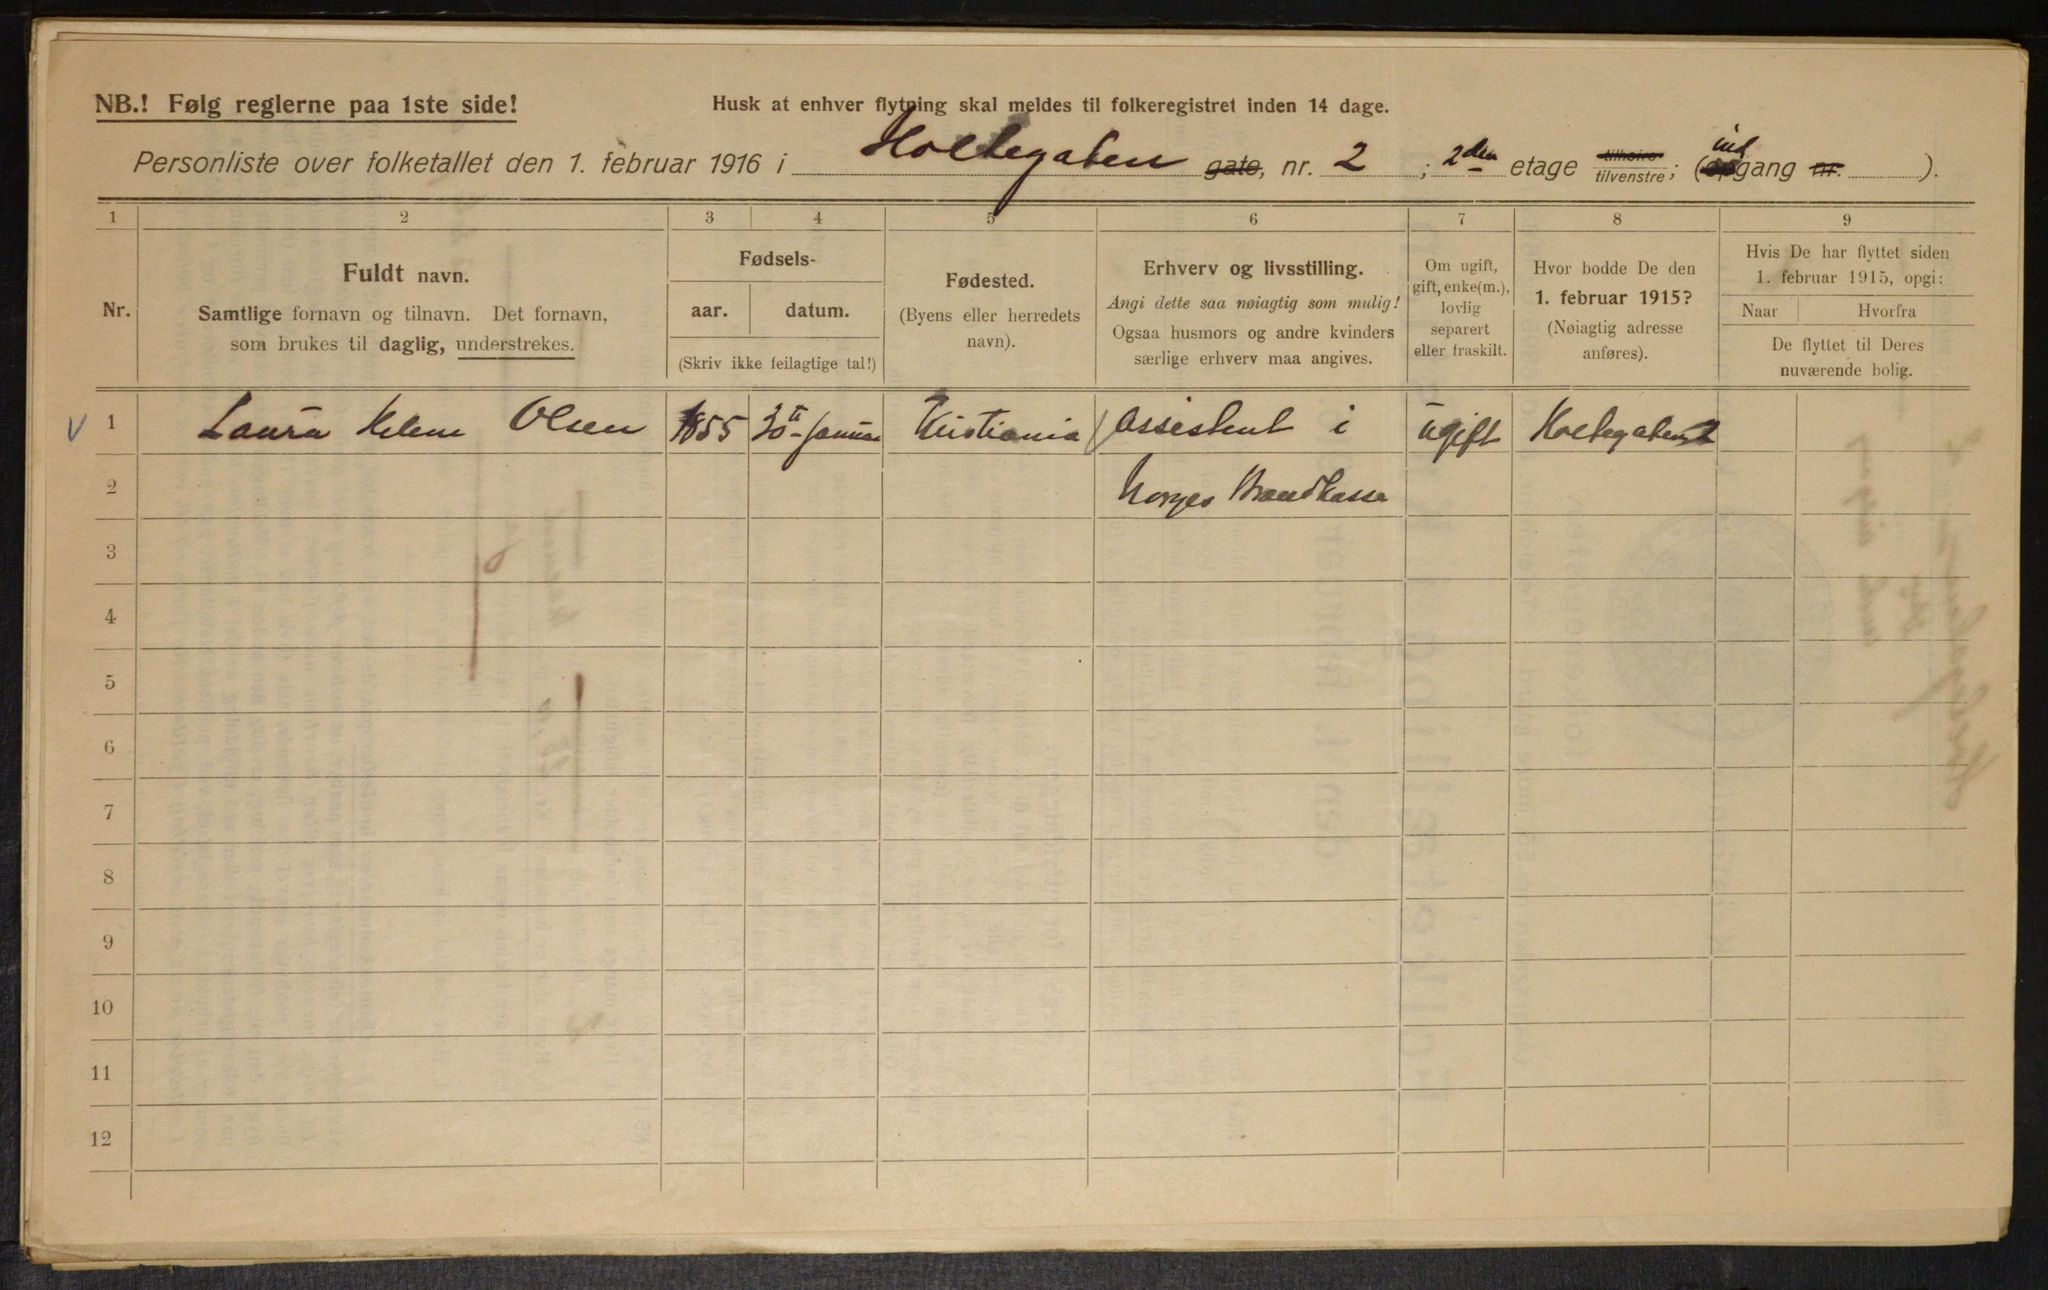 NB.! Følg reglerne paa 1ste side!
Husk at enhver flytning skal meldes til folkeregistret inden 14 dage.
Personliste over folketallet den 1. februar 1916 i Holtegaten gate, nr. 2 ; 2den etage tilhøire tilvenstre; (indgang nr. ).
1 2 3 4 5 6 7 8 9
Nr.
Fuldt navn.
Samtlige fornavn og tilnavn. Det fornavn,
som brukes til daglig, understrekes.
Fødsels-
aar. datum.
(Skriv ikke feilagtige tal!)
Fødested.
(Byens eller herredets
navn).
Erhverv og livsstilling.
Angi dette saa nøiagtig som mulig!
Ogsaa husmors og andre kvinders
særlige erhverv maa angives.
Om ugift,
gift, enke(m.),
lovlig
separert
eller fraskilt.
Hvor bodde De den
1. februar 1915?
(Nøiagtig adresse
anføres).
Hvis De har flyttet siden
1. februar 1915, opgi:
Naar Hvorfra
De flyttet til Deres
nuværende bolig.
V 1 Laura Helene Olsen 1855 Januar Kristiania Assistent i ugift Holtegaten 2
2 Norges Brandkasse
3
4
5
6
7
8
9
10
11
12